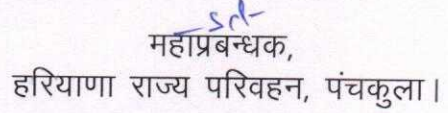 Sd-
महाप्रबन्धक,
हरियाणा राज्य परिवहन, पंचकुला।